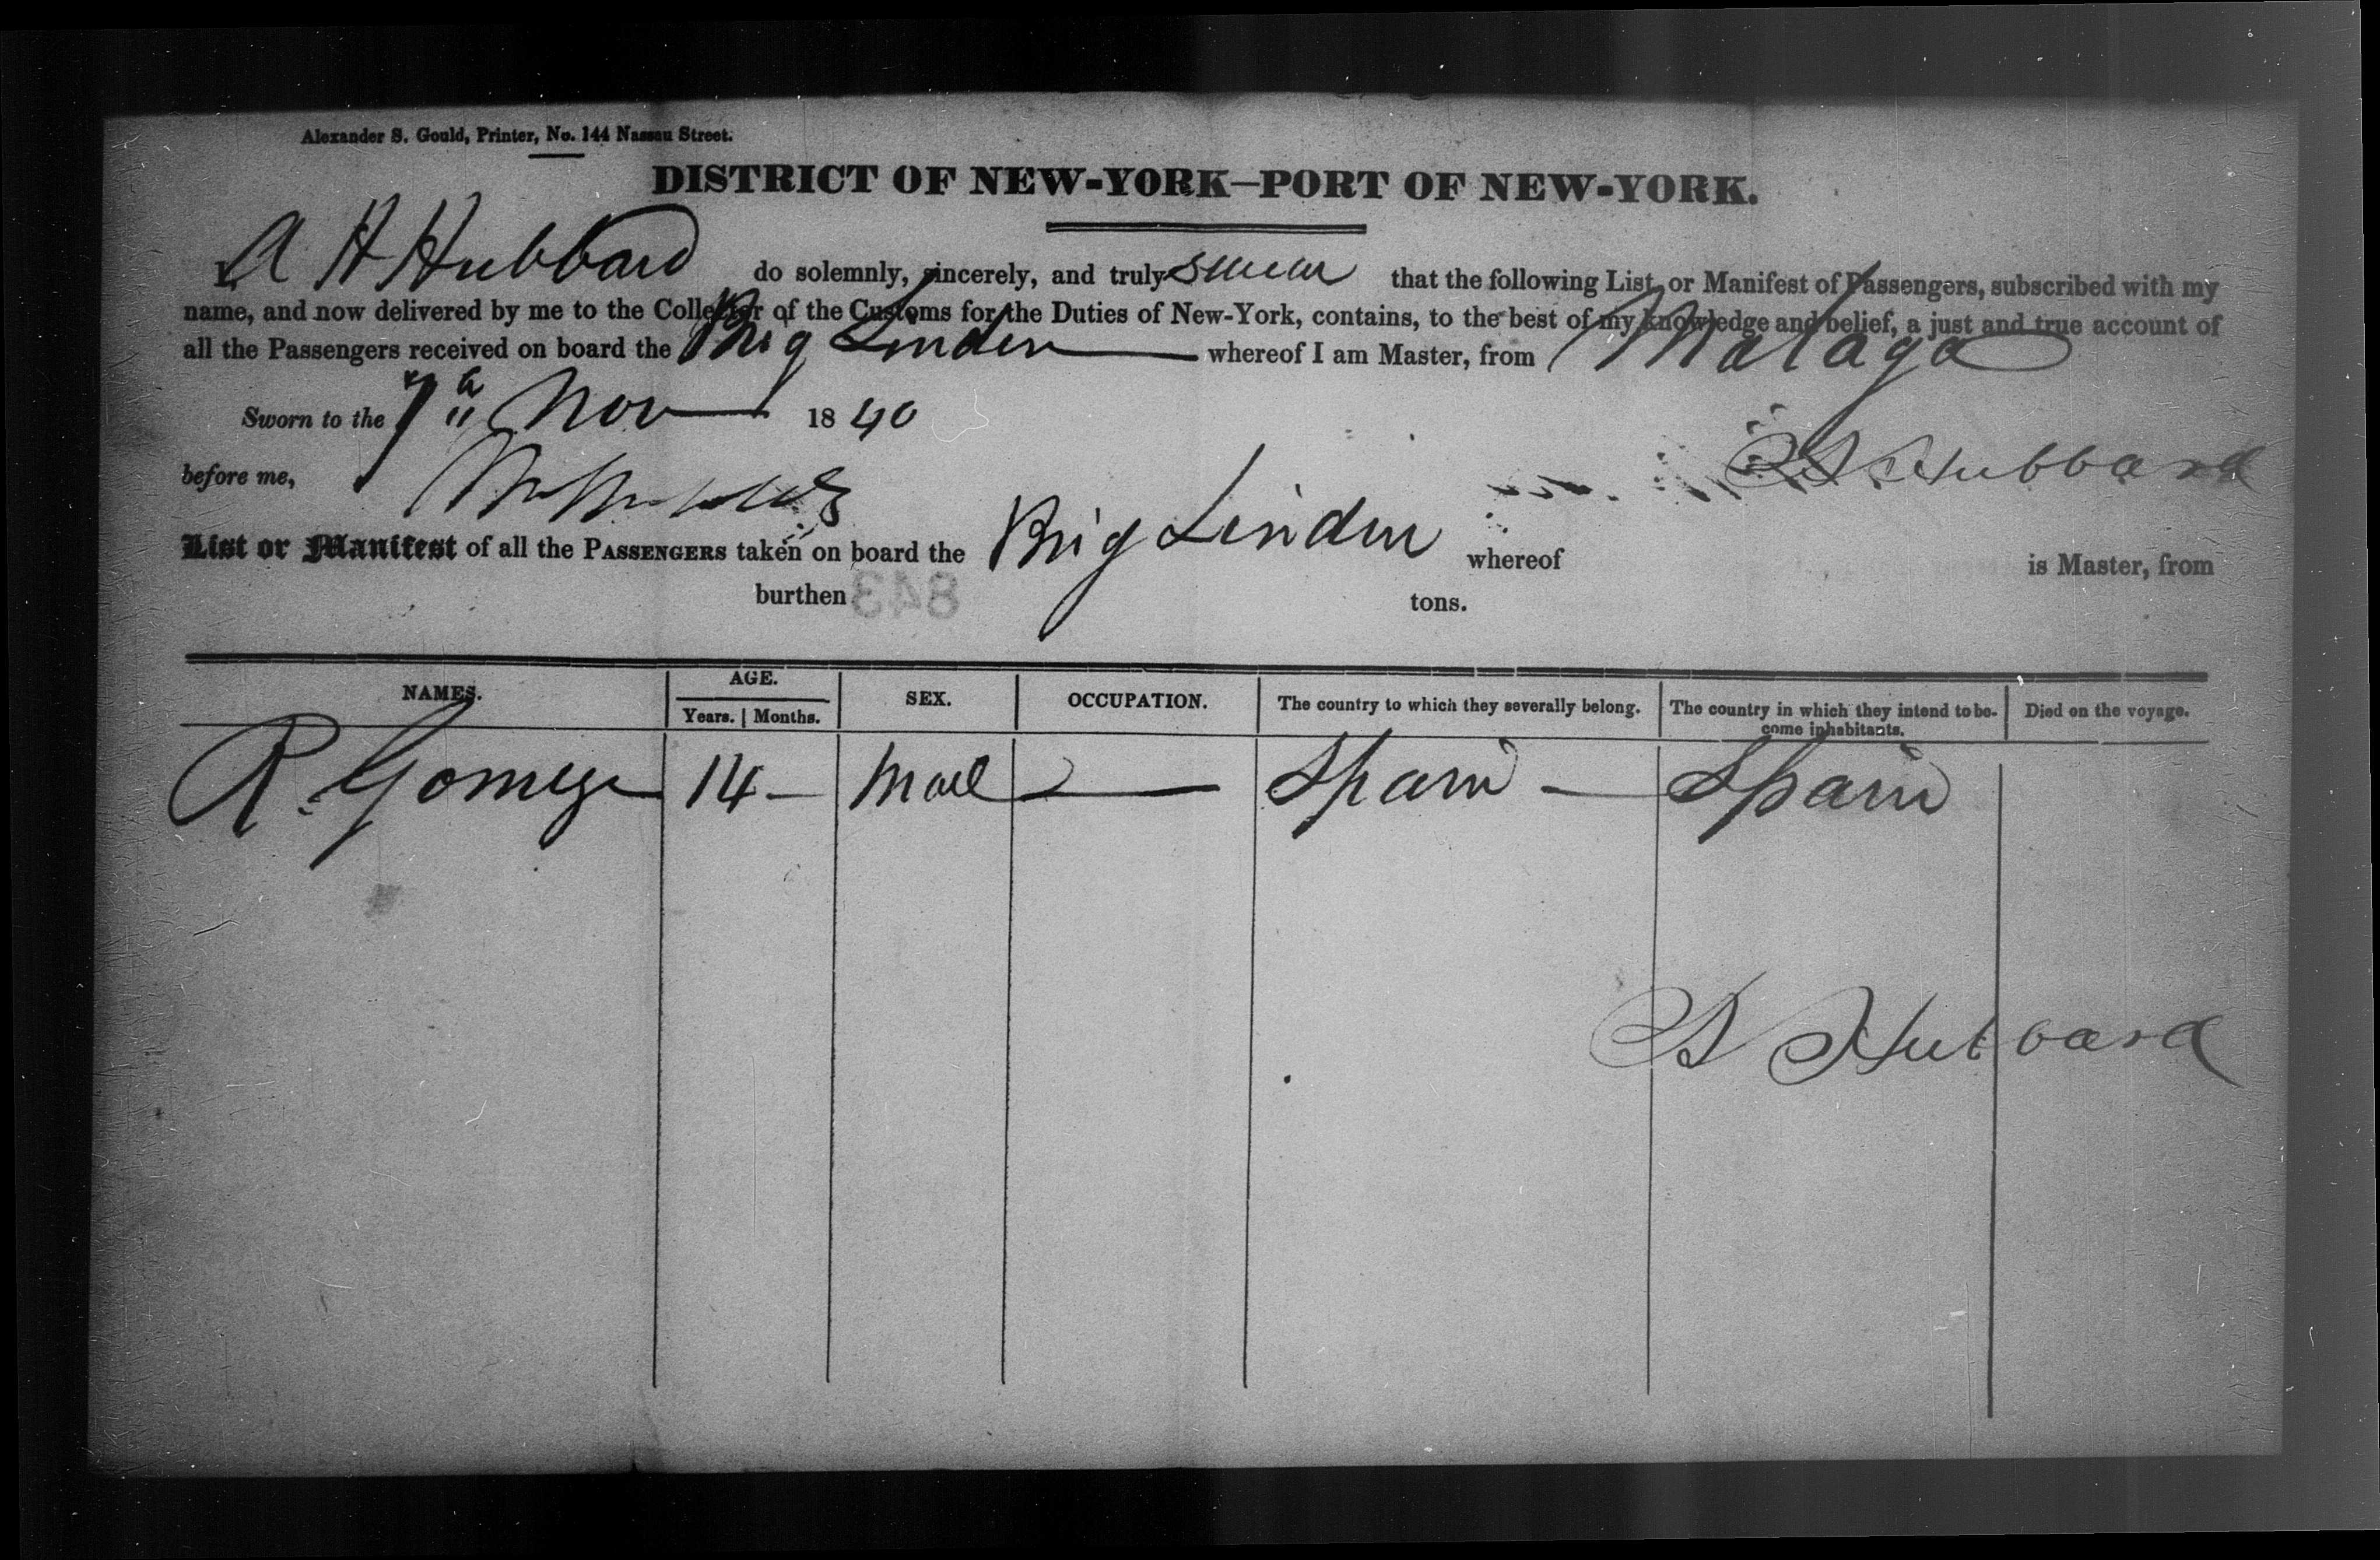 Alexander S. Gould, Printer, No. 144 Nassau Street.
DISTRICT OF NEW-YORK—PORT OF NEW-YORK.
I, A H Hubbard do solemnly, sincerely, and truly swear that the following List or Manifest of Passengers, subscribed with my
name, and now delivered by me to the Collector of the Customs for the Duties of New-York, contains, to the best of my knowledge and belief, a just and true account of
all the Passengers received on board the Brig Linden whereof I am Master, from Malaga
Sworn to the 7 Nov 1840
Hubbard
before me,
List or Manifest of all the PASSENGERS taken on board the Brig Linden whereof is Master, from
burthen 843 tons.
NAMES. AGE. SEX. OCCUPATION. The country to which they severally belong. The country in which they intend to be- Died on the voyage.
Years. Months. come inhabitants.
R. Gomez 14 — Mael — Spain — Spain
Hubbard